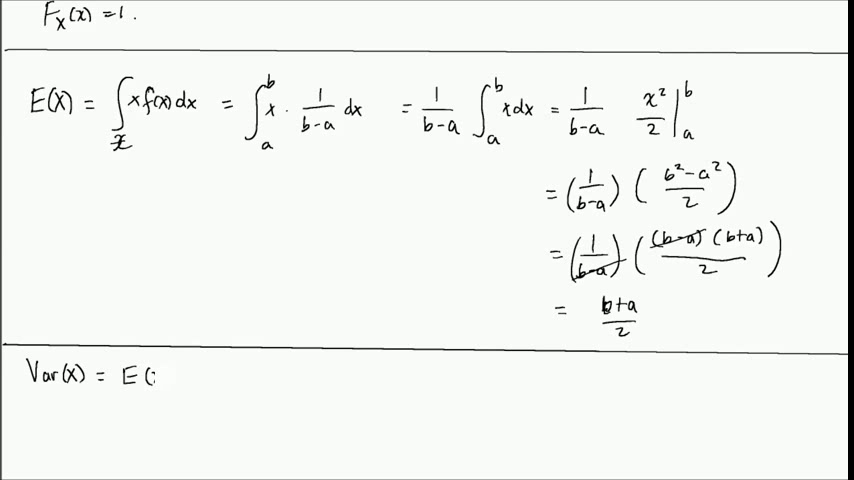 F_X(x) = 1.
E(X) = ∫_𝒳 x f(x) dx = ∫_a^b x · 1/(b-a) dx = 1/(b-a) ∫_a^b x dx = 1/(b-a) x²/2 |_a^b
= (1/(b-a)) ((b²-a²)/2)
= (1/(b-a)) ((b-a)(b+a)/2)
= (b+a)/2
Var(X) = E(